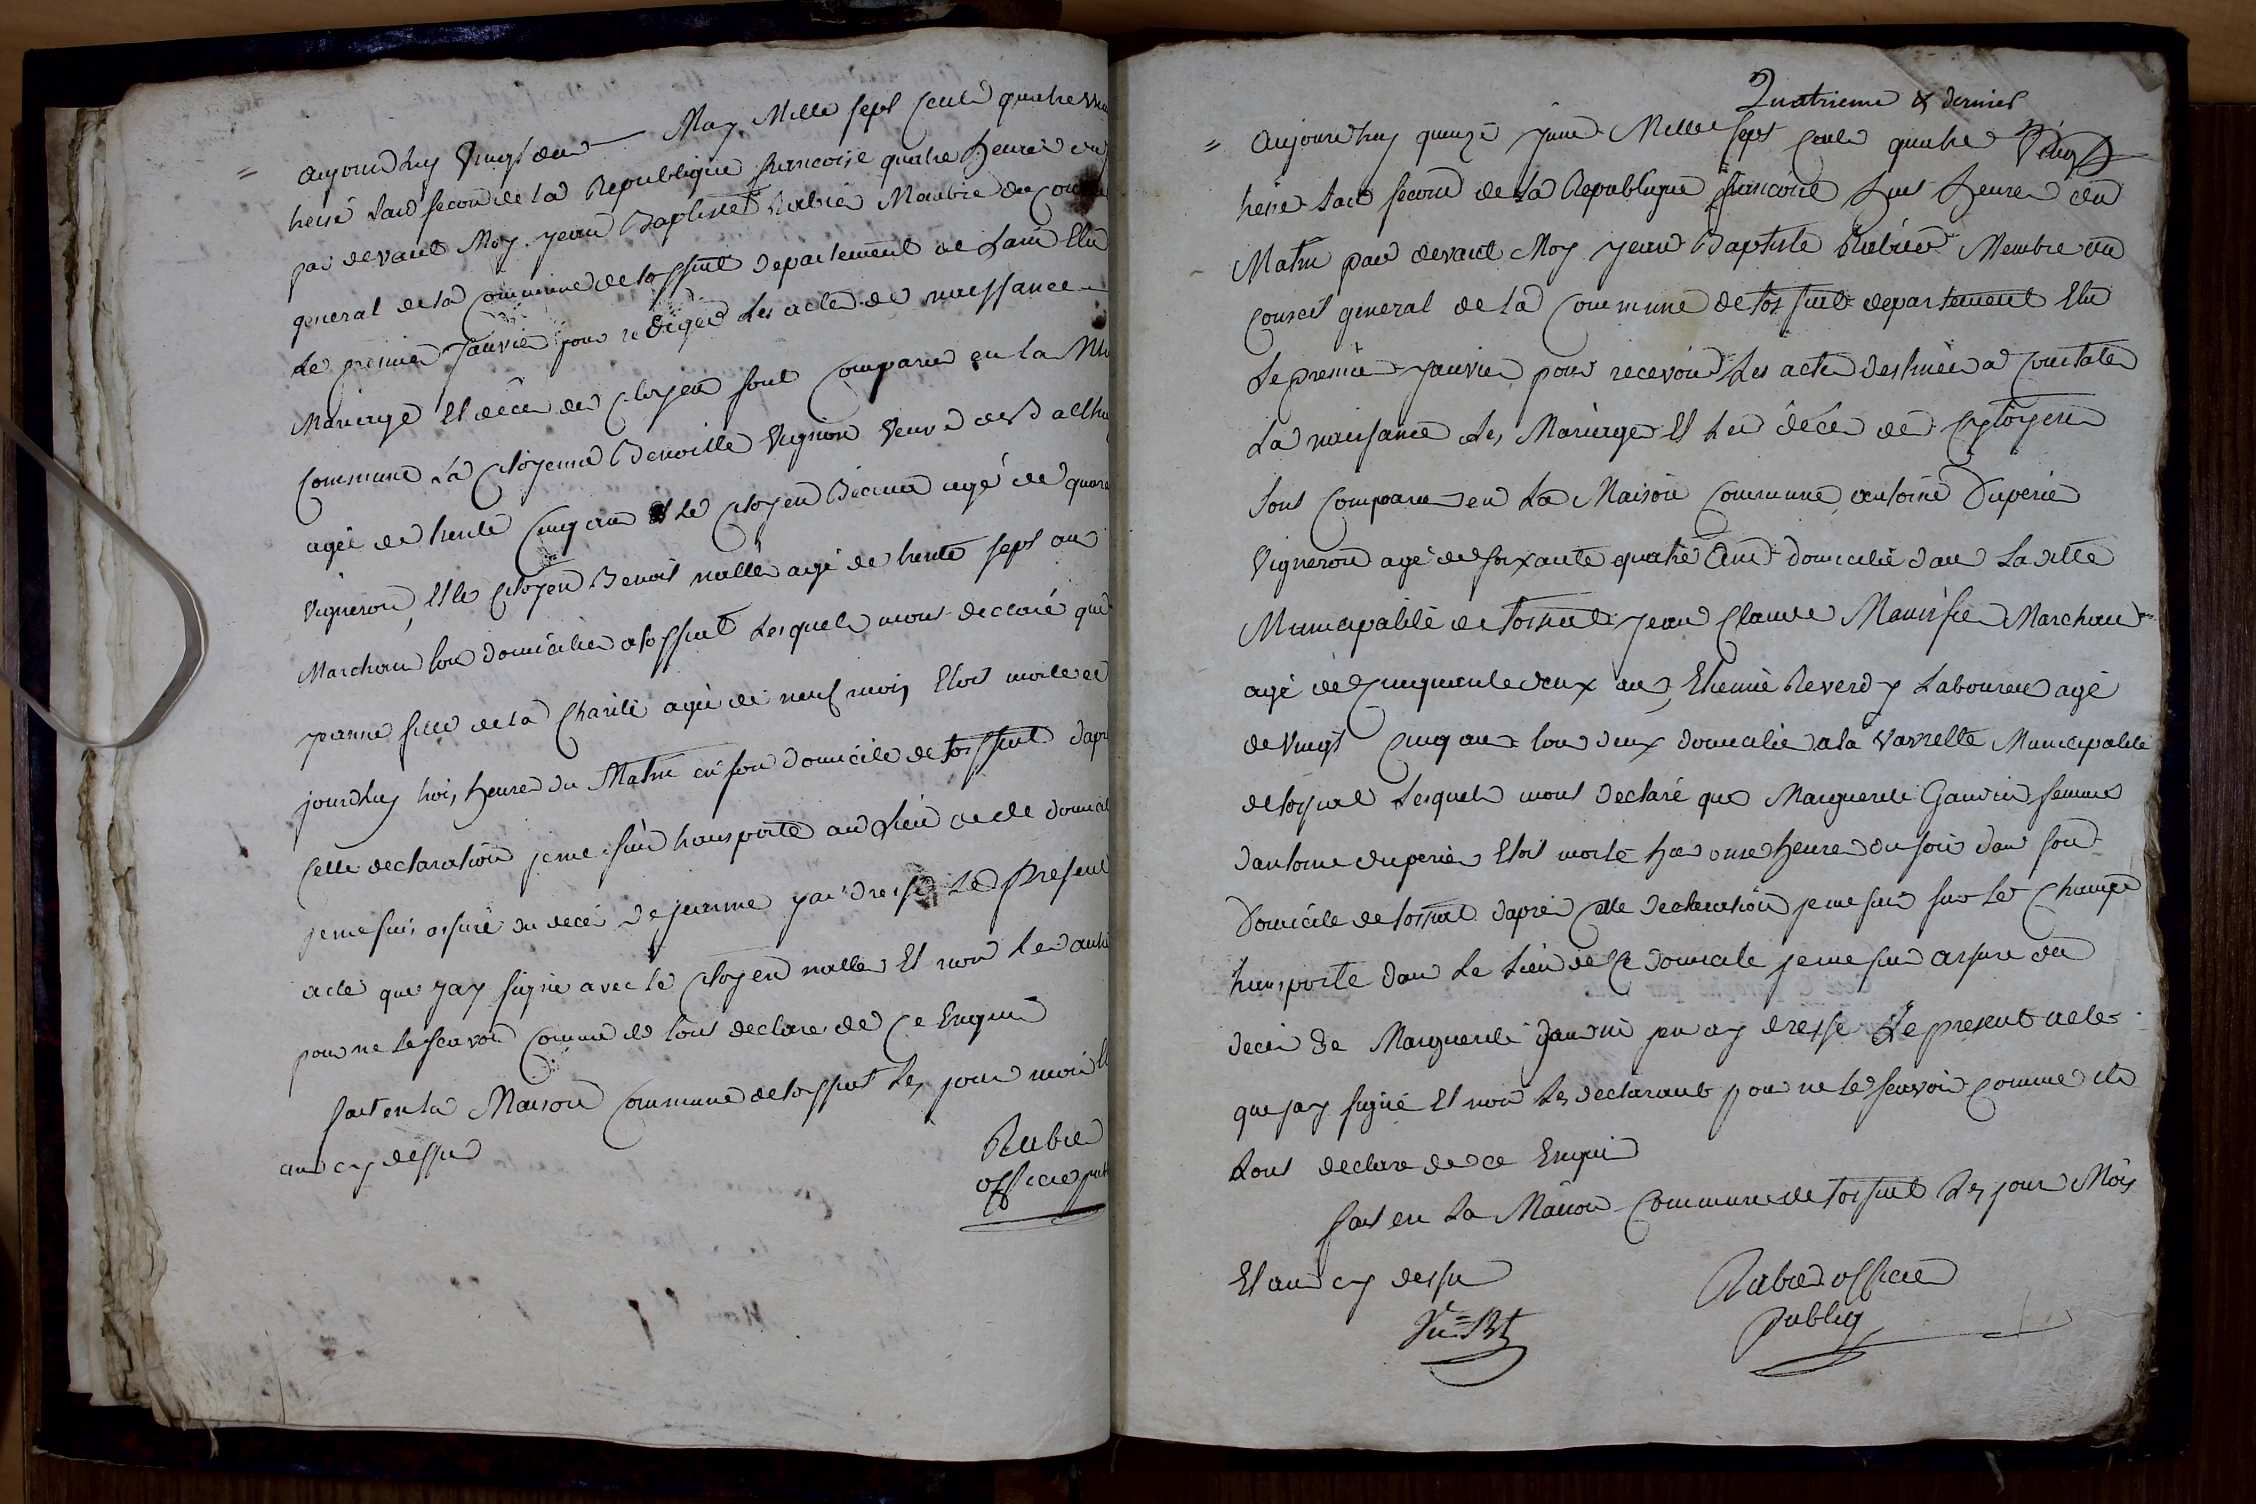 aujourdhuy vingt deux May Mille sept cents quatre vin
heisé Lan second de la Republique francoise quatre heures du
par devant Moy jean Baptiste Rubier Membre du Con
general de la commune de tossiat departement de Lain Elu
Le premier janvier pour rediger Les actes de naissance
Mariage Et décès des citoyens sont comparus en la
Commune La citoyenne Benoitte Vignon Veuve de
agée de trente cinq ans Et le citoyen agé de quara
Vigneron, Et le citoyen Benoit nallés agé de trente sept ans
Marchand tous domiciliés a tossiat Lesquels mont declaré que
jeanne fille de la Charité agée de neuf mois Etoit morte ce
jourdhuy trois heures du Matin en son domicile de tossiat dapr
Cette declaration je me suis transporté au Lieu de ce domicil
je me suis assuré du décès de jeanne jai dressé Le present
acte que jay signé avec le citoyen nallés Et non Les autre
pour ne le scavoir comme ils Lont declare de ce Enquis
fait en la Maison Commune de tossiat Les jour mois Et
an cy dessus
Rubier
officier pub
Quatrieme & dernier
aujourdhuy quinze juin Mille sept cents quatre Vingt
heise Lan second de la Republique francoise huit heures du
Matin par devant Moy jean Baptiste Rubier Membre du
Conseil general de la Commune de tossiat departement Elu
Le premier janvier pour recevoir Les actes destinées a Constater
La naissance Les Mariages Et Les décés des Cytoyens
Sont Comparus en La Maison Commune antoine Duperier
Vigneron agé de soixante quatre Ans domicilié dans La ditte
Municipalité de tossiat jean Claude Marchand
agé de Cinquante deux ans, Etienne Reverdy Laboureur agé
de Vingt Cinq ans tous deux domiciliés a la Vavrette Municipalité
de tossiat Lesquels mont declaré que Marguerite Gauvin femme
dantoine duperier Etoit morte hier onze heures du soir dans son
Domicile de tossiat dapres Cette declaration je me suis sur Le Champ
transporté dans Le Lieu de Ce domicile je me suis assuré du
décés de Marguerite gauvin jen ay dressé Le present acte
que jay signé Et non Les declarants pour ne le scavoir comme ils
Lont declaré de ce Enquis
fait en La Maison Commune de tossiat Les jour Mois
Et an cy dessus
Rubier officier
publiq